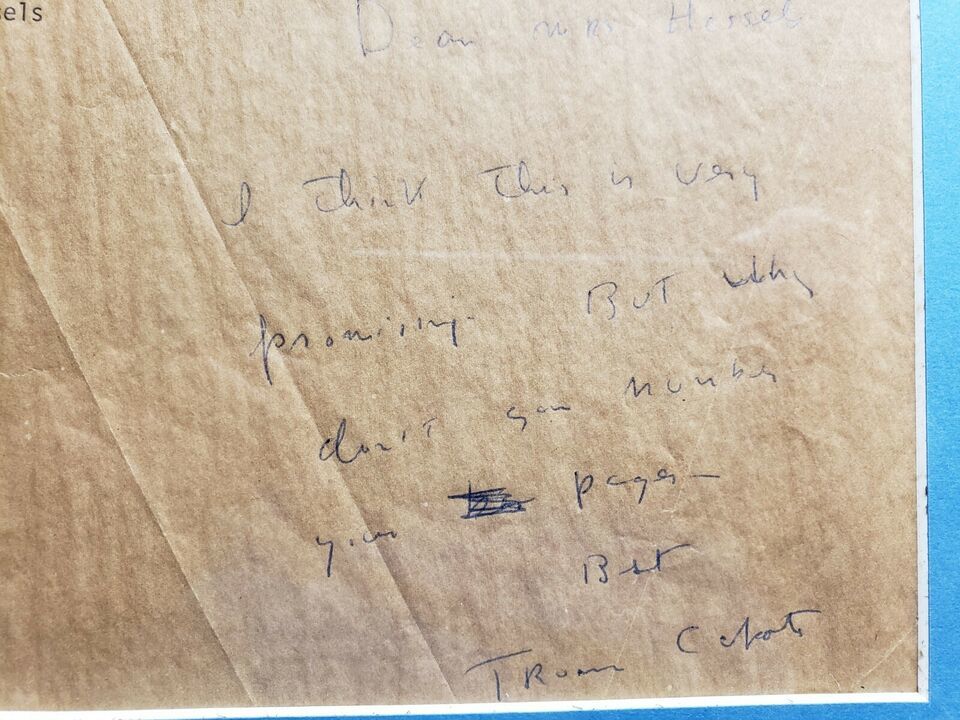 sels
Dear Mrs Hessel
I think this is very
promising. But why
don't you number
your pages—
Best
Truman Capote